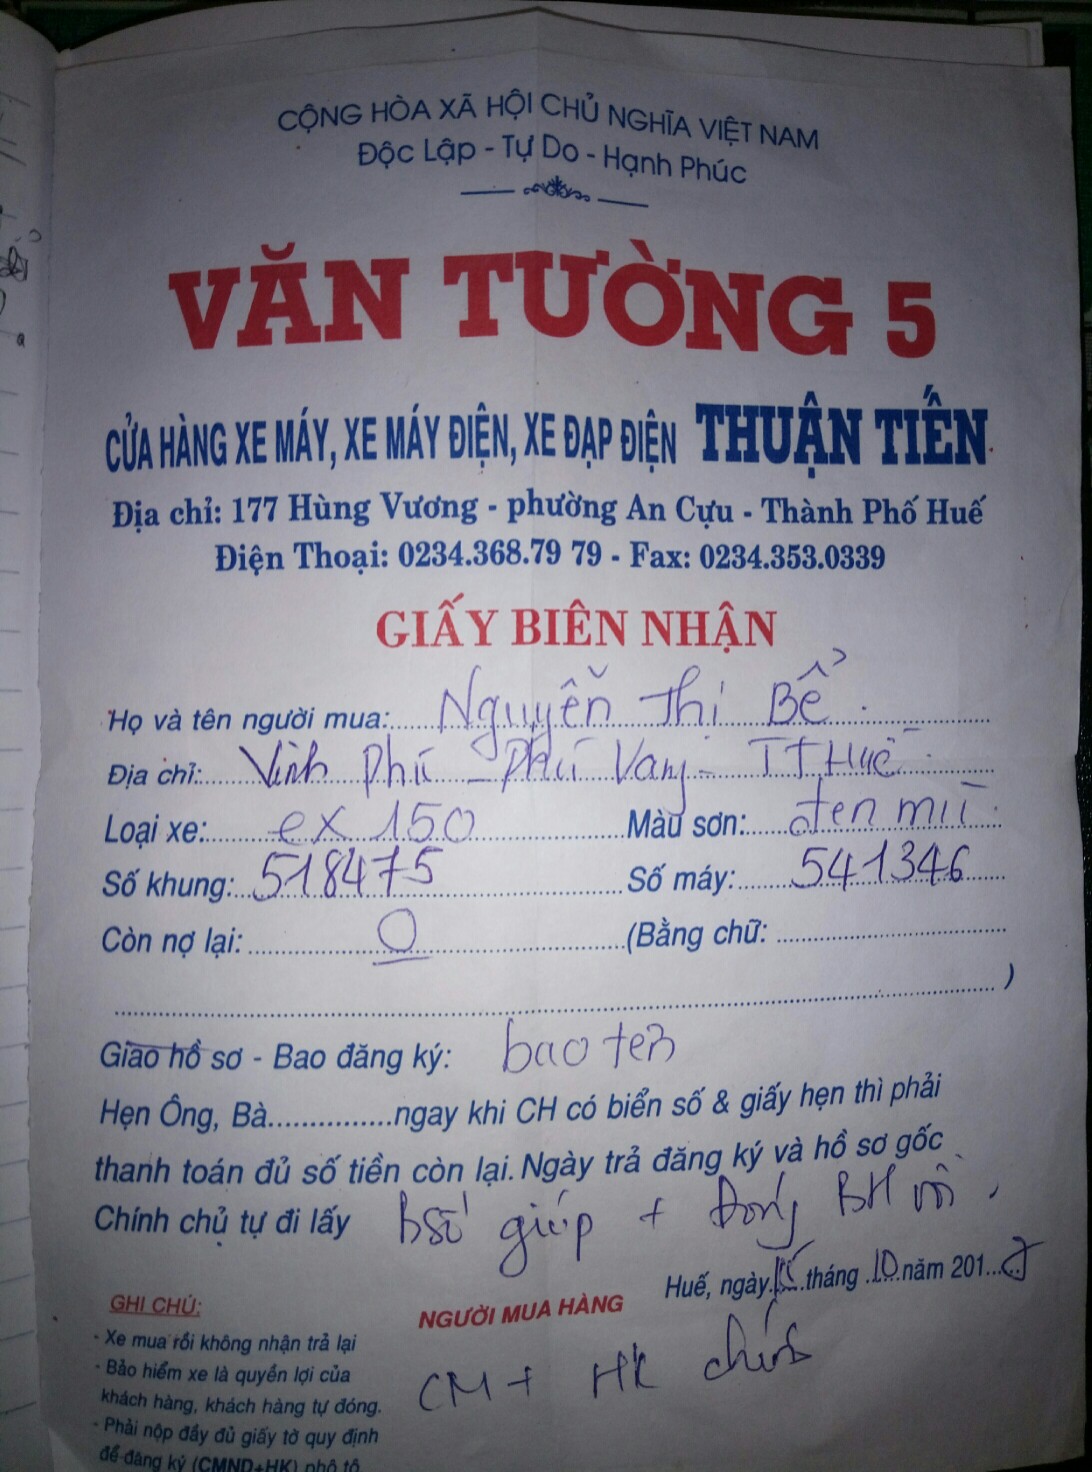 CỘNG HÒA XÃ HỘI CHỦ NGHĨA VIỆT NAM
Độc Lập - Tự Do - Hạnh Phúc
VĂN TƯỜNG 5
CỬA HÀNG XE MÁY, XE MÁY ĐIỆN, XE ĐẠP ĐIỆN THUẬN TIẾN
Địa chỉ: 177 Hùng Vương - phường An Cựu - Thành Phố Huế
Điện Thoại: 0234.368.79 79 - Fax: 0234.353.0339
GIẤY BIÊN NHẬN
Họ và tên người mua: Nguyễn Thị Bể
Địa chỉ: Vinh Phú - Phú Vang - TT Huế
Loại xe: ex 150 Màu sơn: đen mù
Số khung: 518475 Số máy: 541346
Còn nợ lại: 0 (Bằng chữ:
)
Giao hồ sơ - Bao đăng ký: bao ten
Hẹn Ông, Bà...............ngay khi CH có biển số & giấy hẹn thì phải
thanh toán đủ số tiền còn lại. Ngày trả đăng ký và hồ sơ gốc
Chính chủ tự đi lấy bsố giúp + Đóng BH
Huế, ngày tháng 10 năm 201
GHI CHÚ: NGƯỜI MUA HÀNG
- Xe mua rồi không nhận trả lại
- Bảo hiểm xe là quyền lợi của
khách hàng, khách hàng tự đóng. CM + HK chính
- Phải nộp đầy đủ giấy tờ quy định
để đăng ký (CMND+HK) phô tô